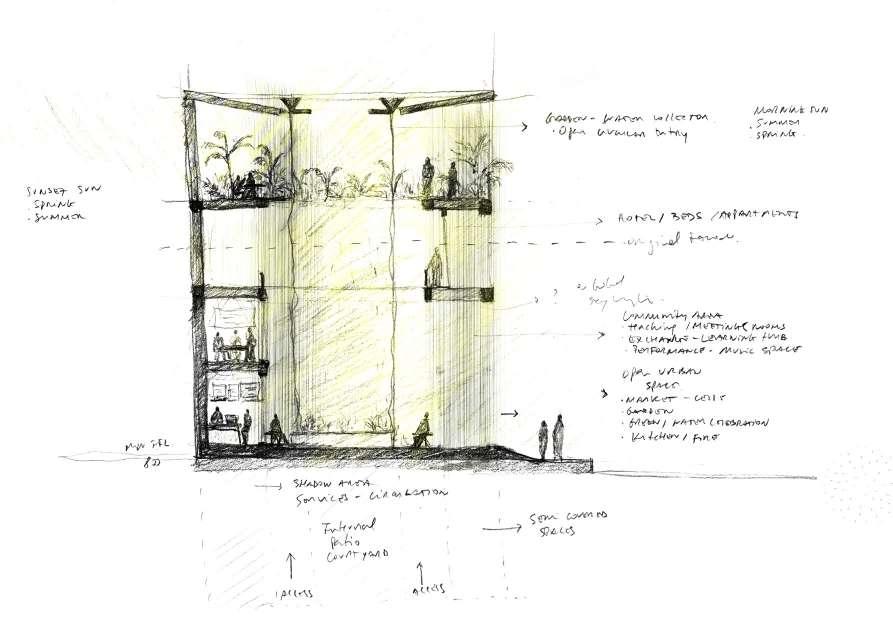 GARDEN - WATER COLLECTOR
• Open
MORNING SUN
• SUMMER
• SPRING
SUNSET SUN
• SPRING
• SUMMER
HOTEL / BEDS / APARTMENTS
original
COMMUNITY AREA
• teaching / MEETINGS ROOMS
• EXCHANGE - LEARNING HUB
• PERFORMANCE - MUSIC SPACE
Open URBAN
SPACE
• MARKET - CELLS
• GARDEN
• GREEN / WATER CELEBRATION
• KITCHEN / FIRE
SHADOW AREA
SERVICES - CIRCULATION
Internal
Patio
COURTYARD
SEMI COVERED
SPACES
ACCESS
ACCESS